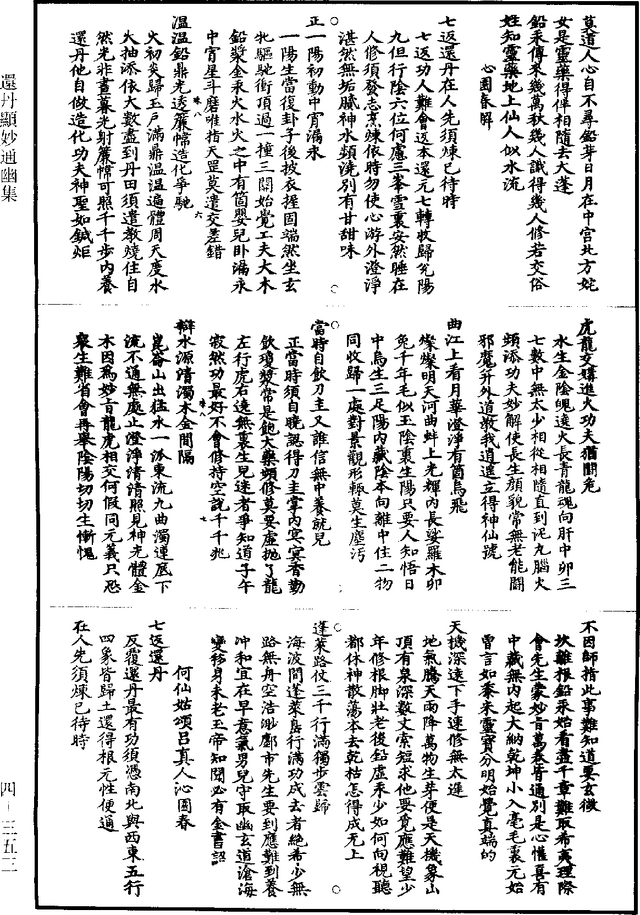 還丹顯妙通幽集
四－三五三
莫道人心自不尋鉛芽日月在中宮北方姹
女是靈藥得伴相隨去大蓬
鉛汞傳來幾萬秋幾人識得幾人修若交俗
姓知靈藥地上仙人似水流
心圓春解
七返還丹在人先須煉己待時
七返功人難會返本還元七轉收歸兊陽
九但行陰六位何慮三峯雪裏安然睡在
人修須發志烹煉依時勿使心游外澄淨
湛然無垢膩神水頻澆別有甘甜味
正一陽初動中宵漏永
一陽生當復卦子後披衣握固端然坐玄
牝驅馳衝頂過一撞三關始覺工夫大木
鉛漿金汞火水火之中有箇嬰兒卧漏永
中宵星斗磨唯指天罡莫遣交差錯
溫溫鉛鼎光透簾幃造化爭馳
火初炎歸玉戶滿鼎溫溫遍體周天度水
火抽添依大數盡到丹田須遣教燒住自
然光非晝暮光射簾幃可照千千步內養
還丹他自做造化功夫神聖如鍼炬
虎龍交媾進火功夫猶鬬危
水生金陰魄遶火長青龍魂向肝中卯三
七數中無太少相從相隨直到泥九腦火
頭添功夫妙解使長生顏貌常無老能鬬
邪魔并外道教我逍遥立得神仙號
曲江上看月華澄淨有箇烏飛
燦燦明天河曲蚌上光輝內長娑羅木卯
兔千年毛似玉陰裏生陽只要人知悟日
中烏生三足陽內藏陰本向離中住二物
同收歸一處對景觀形輙莫生塵汚
當時自飲刀圭又誰信無中養就兒
正當時須自曉認得刀圭掌內㝠㝠杳勤
飲瓊漿常是飽大藥頻修莫要虛拋了龍
左行虎右遶無裏生兒迷者爭知道子午
寂然功最好不會修持空說千千兆
辯水源清濁木金間隔
崑崙山出猛水一派東流九曲濁連底下
流不通無處止澄淨清清照見神光體金
木因爲妙言龍虎相交何假同元義只恐
衆生難省會再舉陰陽切切生慚愧
不因師指此事難知道要玄微
坎離根鉛汞始看盡千章難取希夷理際
會先生蒙妙言萬卷皆通別是心懽喜有
中藏無內起大納乾坤小入毫毛裏元始
曾言如黍米靈寶分明始覺真端的
天機深遠下手速修無太遲
地氣騰天雨降萬物生芽便是天機象山
頂有泉深數丈索短求他要覓應難望少
年修根脚壯老後鉛虛汞少如何向視聽
都休神散蕩本去乾枯怎得成无上
蓬莱路仗三千行滿獨步雲歸
海波間蓬萊島行滿功成去者絶希少無
路無舟空浩渺鄽市先生要到應難到養
冲和宜在早意氣男兒守取幽玄道滄海
變移身未老玉帝知聞必有金書詔
何仙姑頌吕真人沁園春
七返還丹
反覆還丹最有功須憑南北與西東五行
四象皆歸土還得根元性便通
在人先須煉已待時